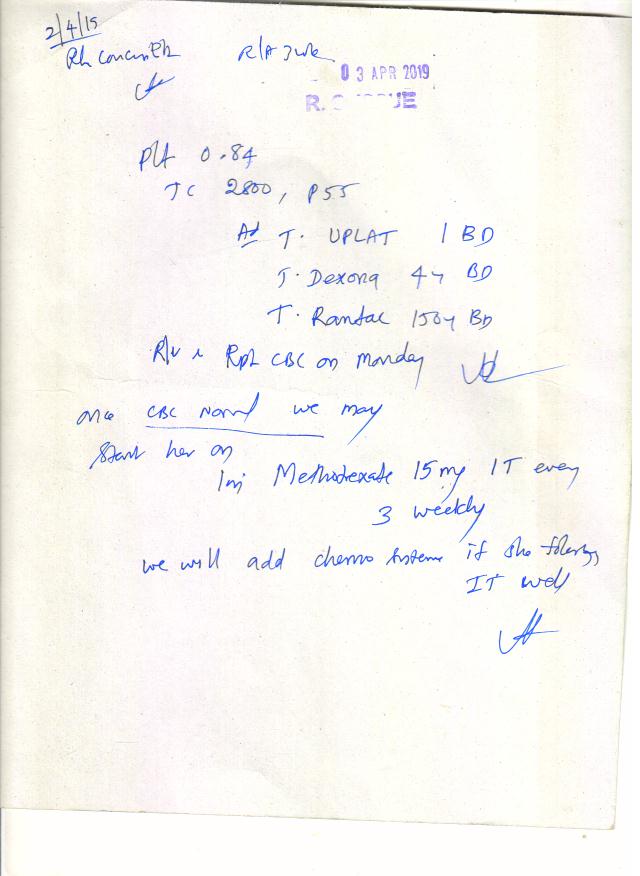 2/4/15
R/A 3wk
03 APR 2019
Plt 0.84
TC 2800, P55
Ad T. UPLAT 1 BD
T. Dexona 4 BD
T. Rantac 150 BD
R/v Rpt CBC on Monday
once CBC Normal we may
start her on
Inj Methotrexate 15 mg IT every
3 weekly
we will add chemo systemic if she tolerates
IT well